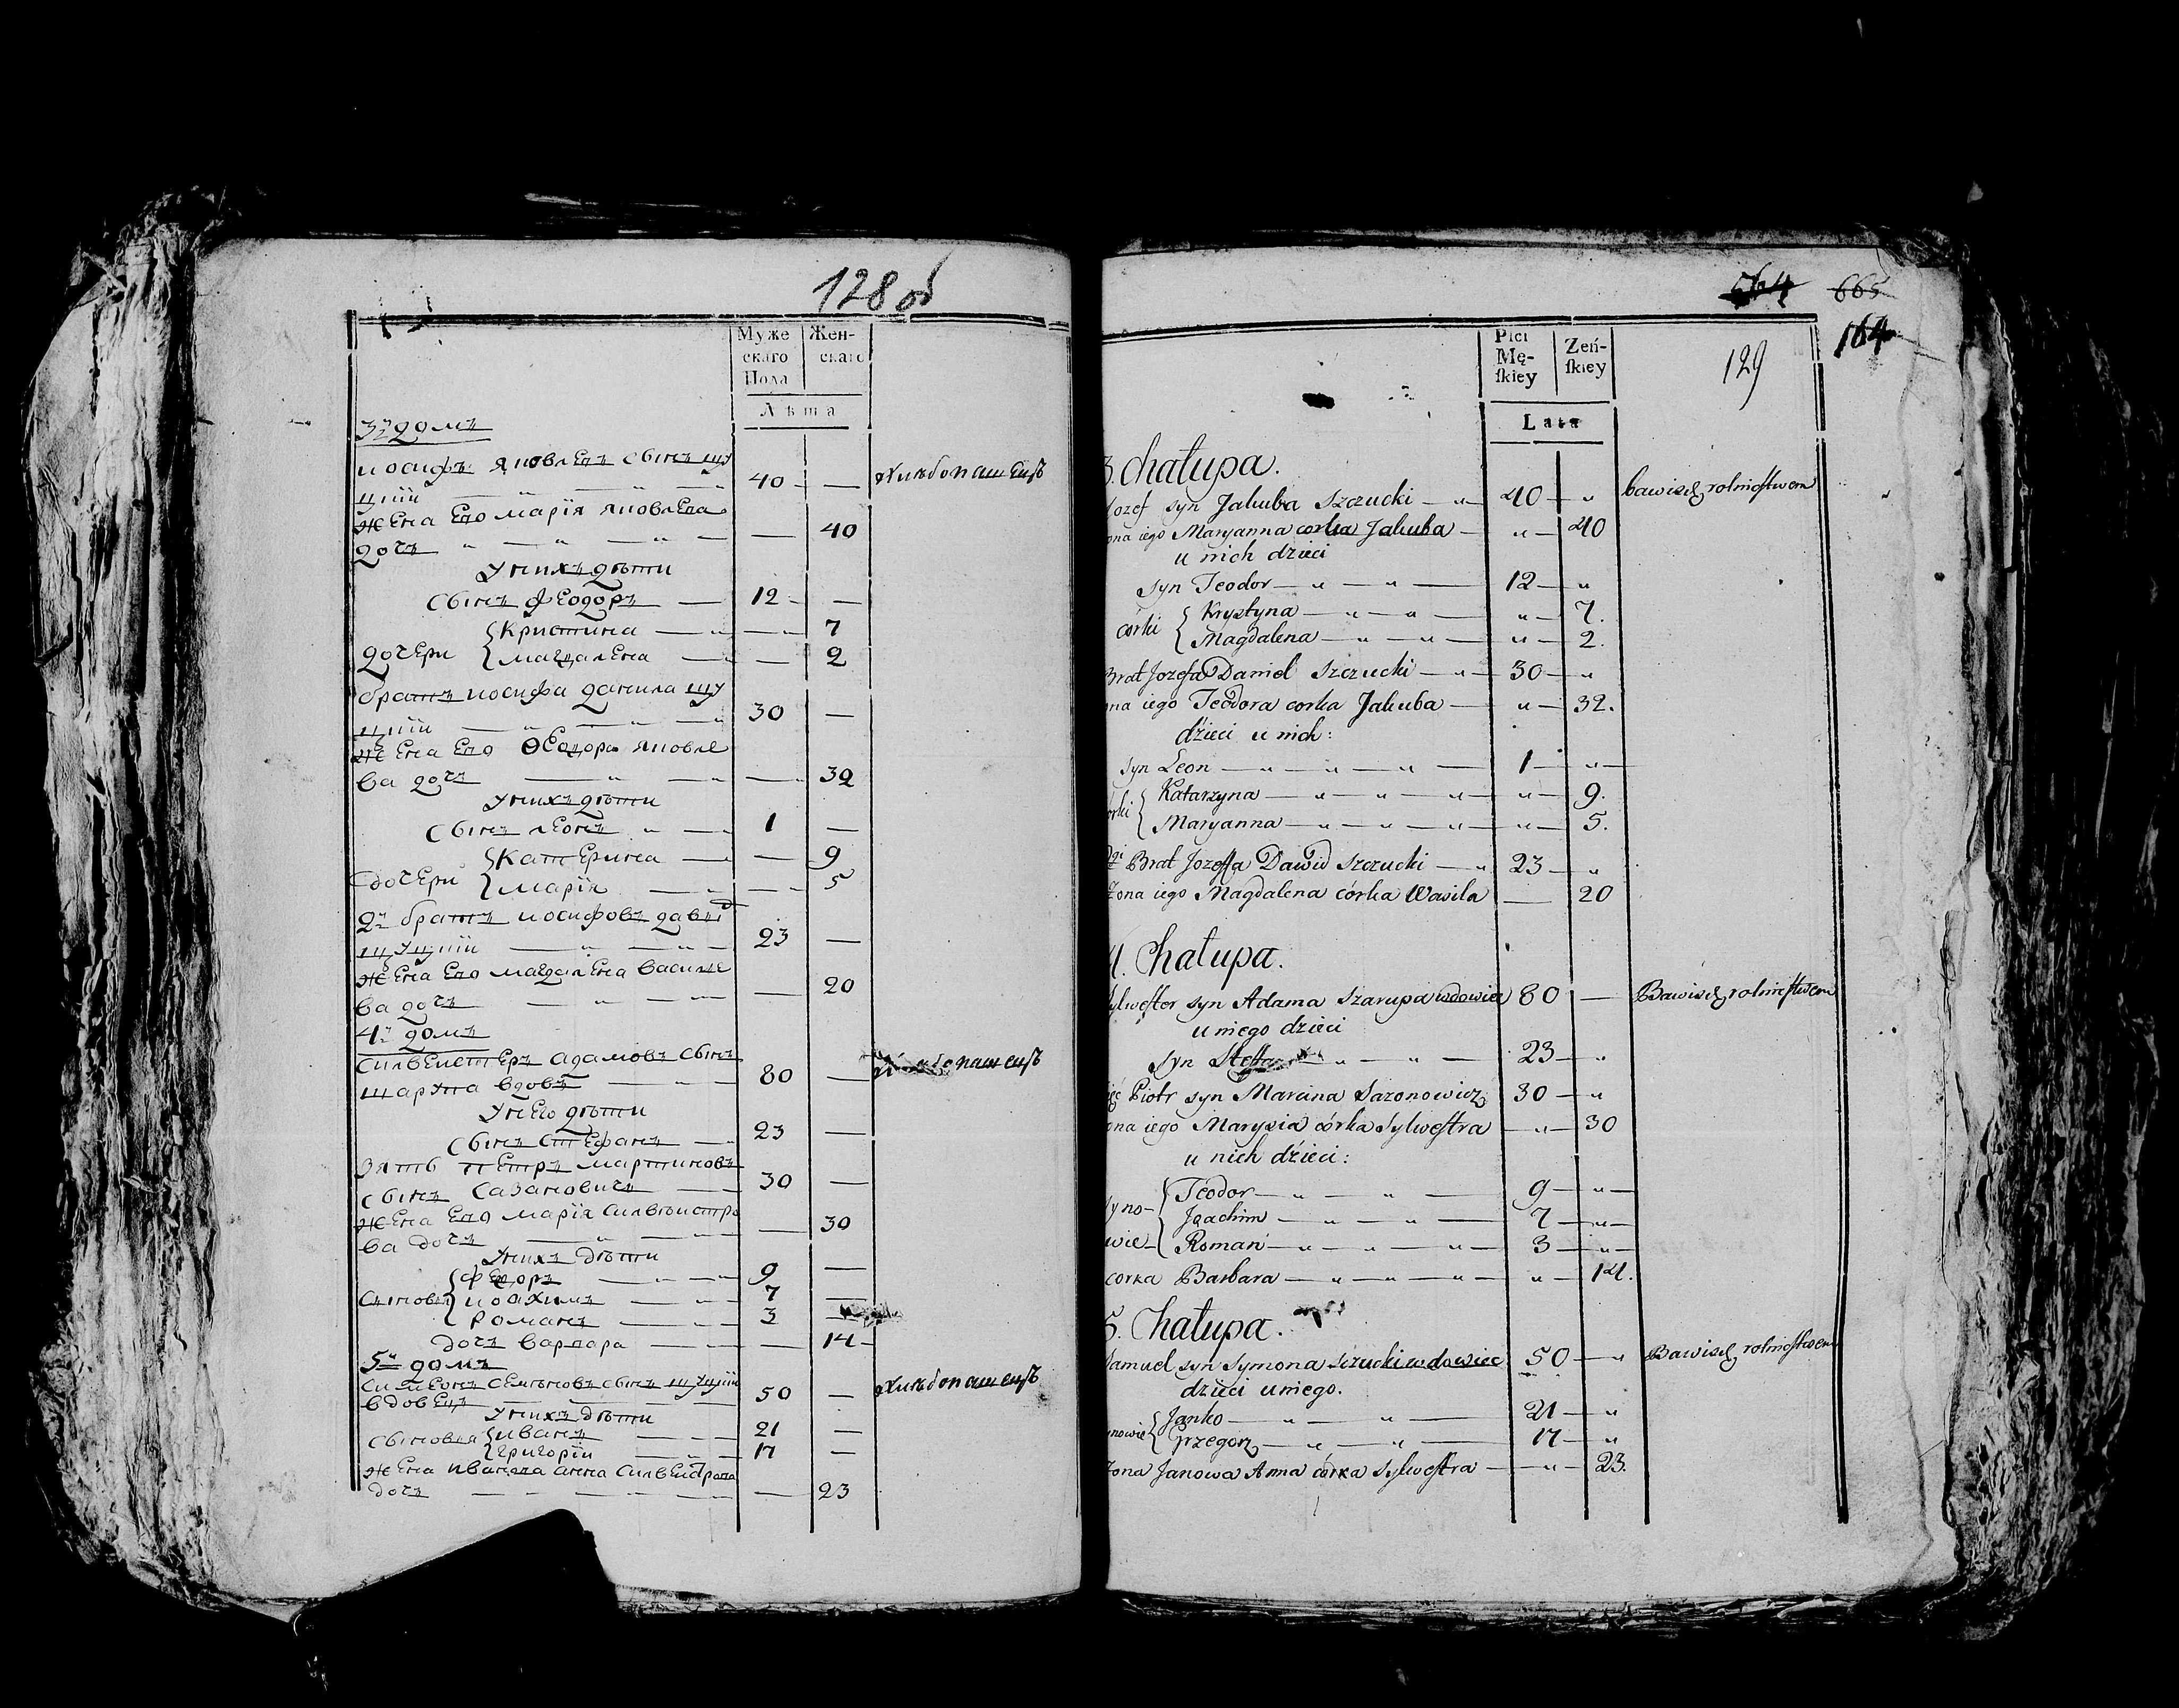 128 об
Муже Жен-
скаго скаго
Пола
Лѣта
3й домъ
иосифъ яковлевъ сынъ щу
цкiй 40 — хлѣбопашецъ
жена его марiя яковлева
дочь — 40
у нихъ дѣти
сынъ феодоръ 12 —
дочери { кристина — 7
магдалена — 2
братъ иосифа данила щу
цкiй 30 —
жена его Ѳеодора яковле
ва дочь — 32
у нихъ дѣти
сынъ леонъ 1 —
дочери { катерина — 9
марiя — 5
2й братъ иосифовъ давид
щуцкiй 23 —
жена его магдалена василе
ва дочь — 20
4й домъ
силвестеръ адамовъ сынъ
шарупа вдовъ 80 — хлѣбопашецъ
у него дѣти
сынъ стефанъ 23 —
зять петръ мартиновъ
сынъ сазановичъ 30 —
жена его марiя силвистро
ва дочь — 30
у нихъ дѣти
сыновья { федоръ 9 —
иоахимъ 7 —
романъ 3 —
дочь варвара — 14
5й домъ
сынъ щуцкiй
вдовецъ 50 — хлѣбопашецъ
у нихъ дѣти
сыновья { иванъ 21 —
григорiй 17 —
жена иванова анна силвестрова
дочь — 23
564 665
164
129
Płci Żeń-
Mę- ſkiey
ſkiey
Lata
3. Chałupa.
Jozef syn Jakuba Szczucki — 40 — „ bawi się rolnictwem
żona iego Maryanna corka Jakuba — „ — 40
u nich dzieci
syn Teodor — „ — „ — 12 — „
córki { Krystyna — „ — „ — „ — 7.
Magdalena — „ — „ — „ — 2.
Brat Jozefa Daniel Szczucki — „ — 30 — „
żona iego Teodora corka Jakuba — „ — 32.
dzieci u nich:
syn Leon — „ — „ — „ — 1 — „ —
córki { Katarzyna — „ — „ — „ — „ — 9.
Maryanna — „ — „ — „ — „ — 5.
2gi Brat Jozeffa Dawid Szczucki — „ 23 — „
Żona iego Magdalena córka Wasila — 20
4. Chałupa.
Sylweſter syn Adama Szarupa wdowiec 80 — Bawi się rolnictwem
u niego dzieci
syn Steffan — „ — „ — 23 — „
zięć Piotr syn Marcina Sazonowicz 30 — „
żona iego Marysia córka Sylweſtra — „ — 30
u nich dzieci:
syno- { Teodor — „ — „ — 9 — „ —
Joachim — „ — „ — 7 — „ —
wie { Roman — „ — „ — „ — 3 — „ —
corka Barbara — „ — „ — „ — „ — 14.
5. Chałupa.
Samuel syn Symona Sczucki wdowiec 50 — „ Bawi się rolnictwem
dzieci u niego.
synowie { Janko — „ — „ — 21 — „
Grzegorz — „ — „ — 17 — „
Żona Janowa Anna córka Sylweſtra — „ — 23.